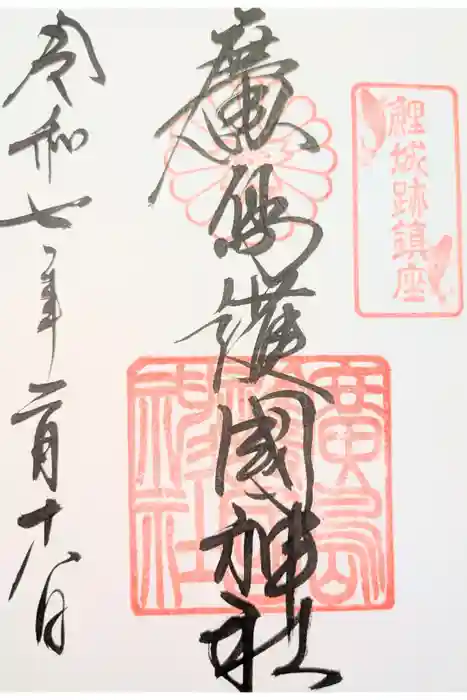 鯉城跡鎮座
廣島護國神社
廣島護國神社
令和七年二月十八日